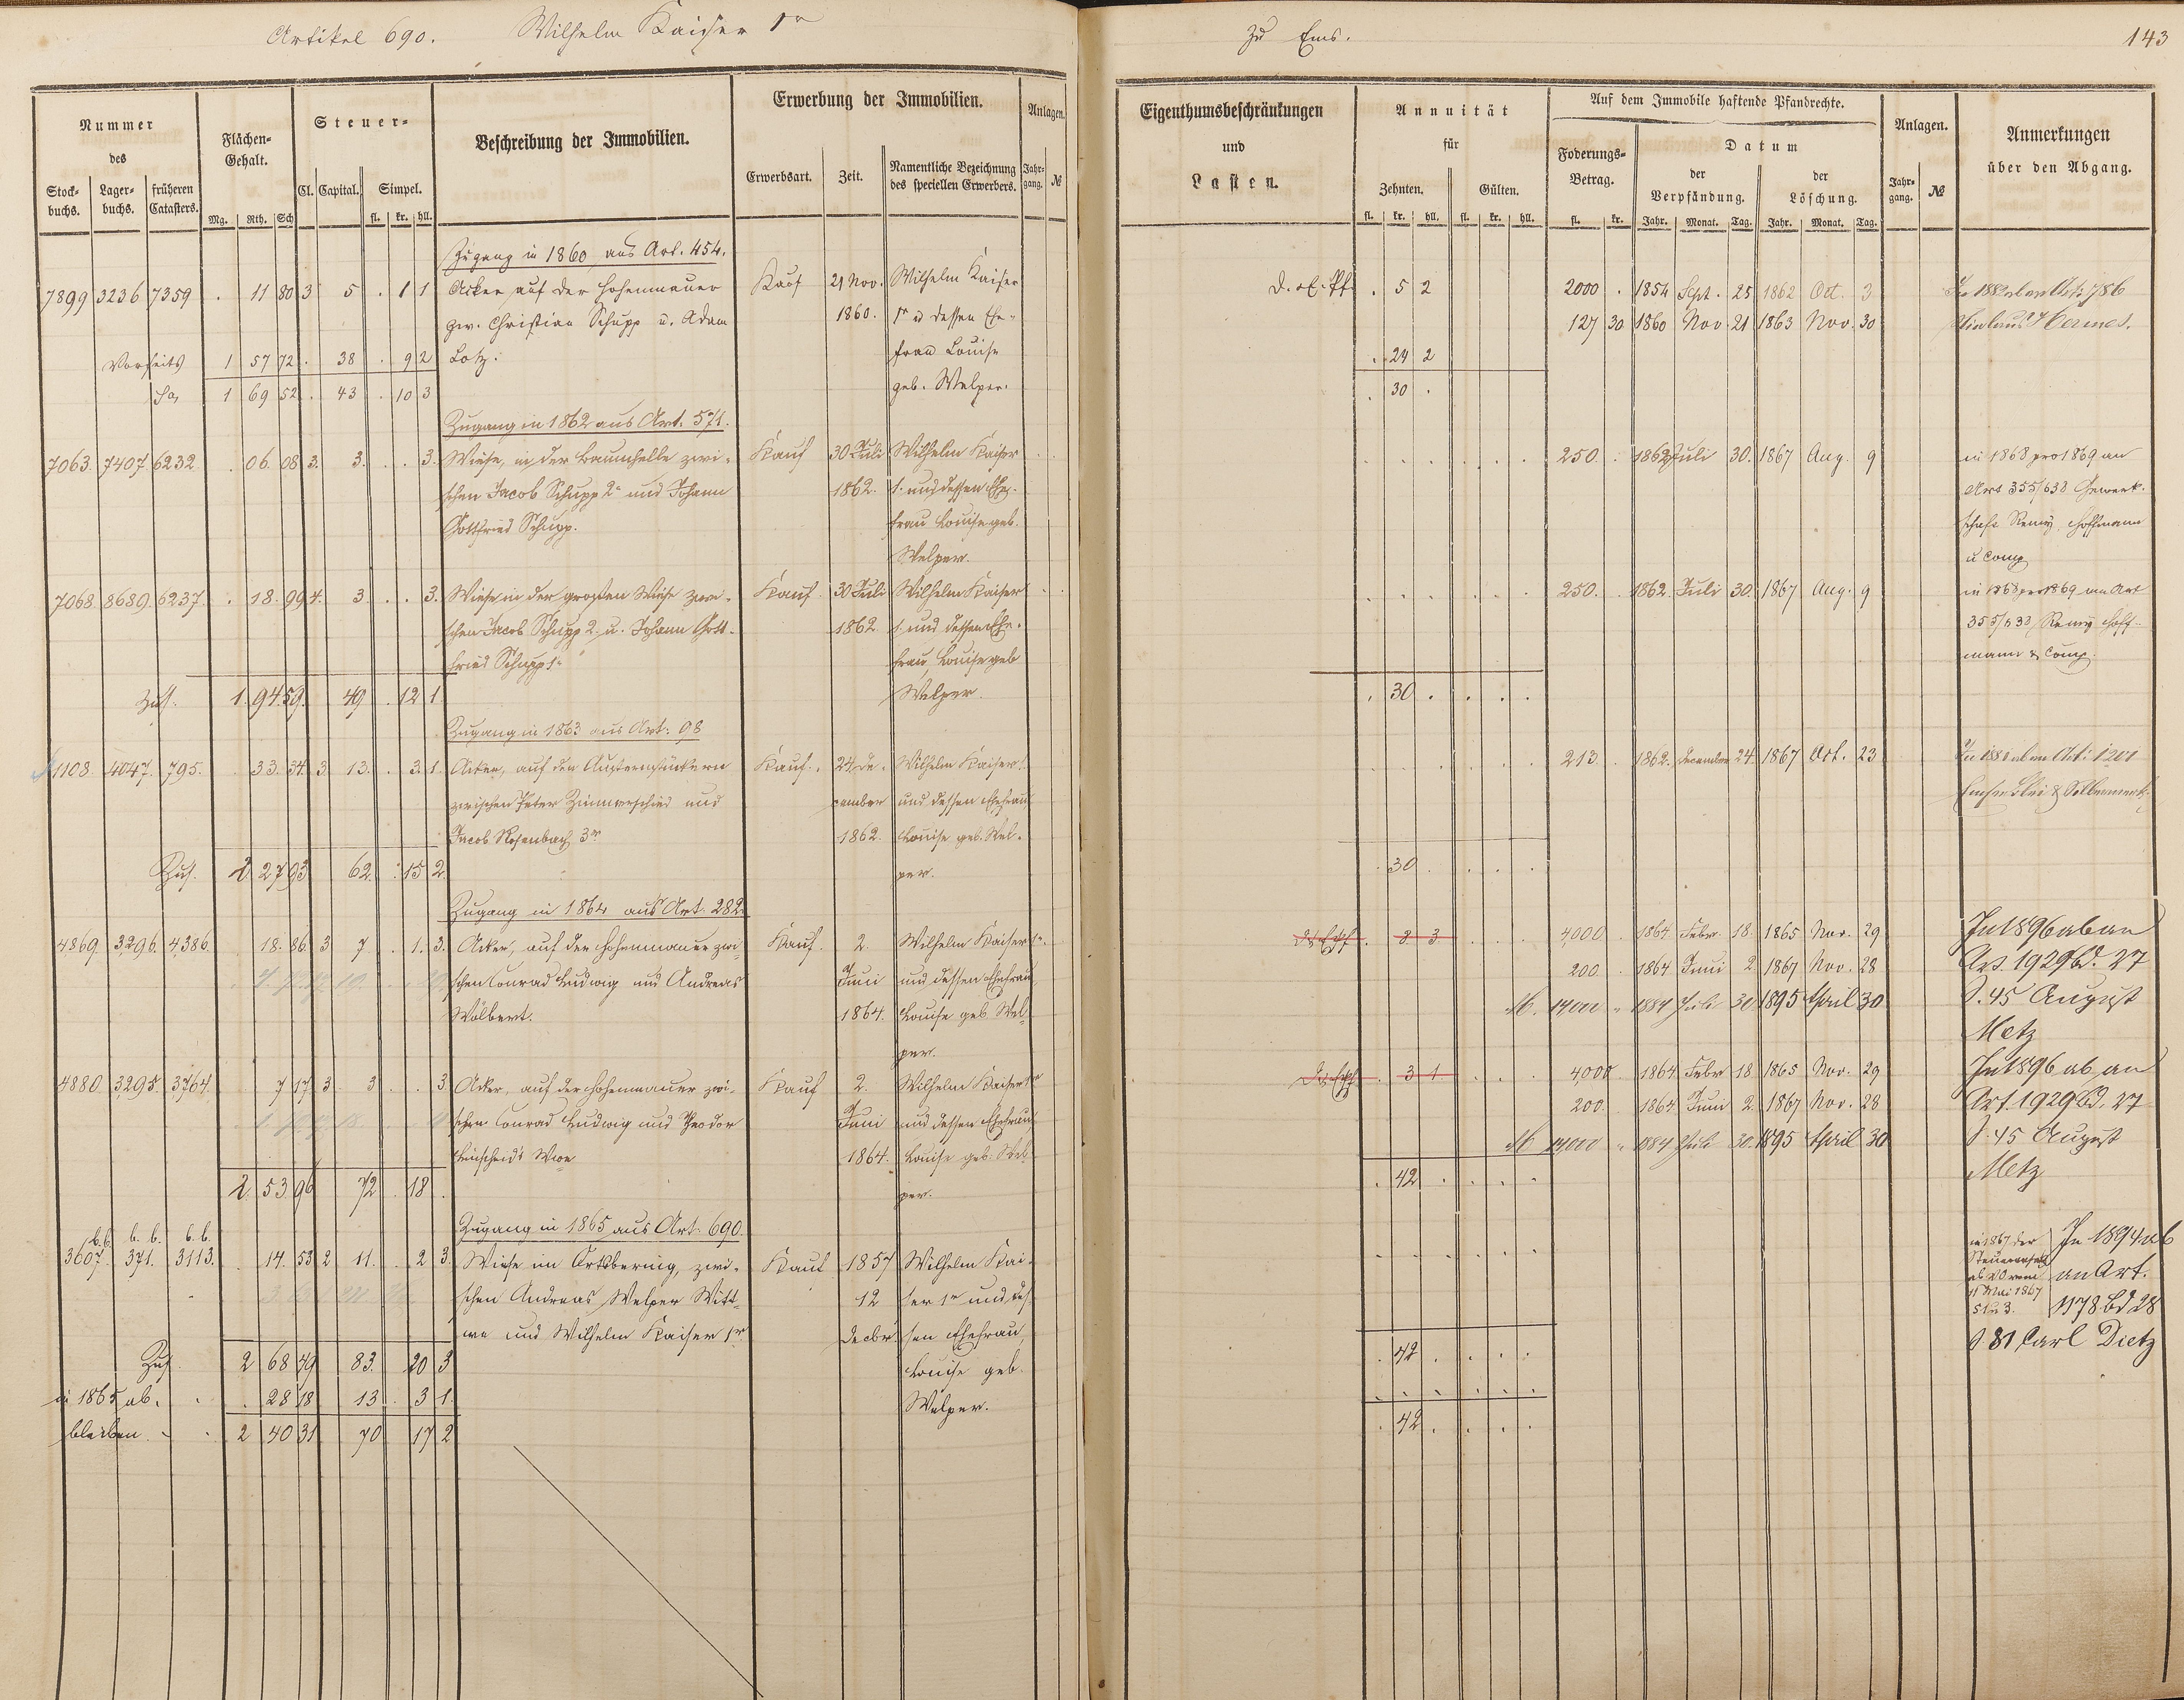 Artikel 690. Wilhelm Kaiser 1r
zu Ems. 143
Nummer des
Stockbuchs. Lagerbuchs. früheren Catasters.
Flächen-Gehalt.
Mg. Rth. Sch
Steuer-
Cl. Capital. Simpel.
fl. kr. hll.
Beschreibung der Immobilien.
Erwerbung der Immobilien.
Erwerbsart. Zeit. Namentliche Bezeichnung des speciellen Erwerbers.
Anlagen.
Jahrgang. №
Zugang in 1860 aus Art. 454.
7899 3236 7359 . 11 80 3 5 . 1 1 Acker auf der Hohenmauer Kauf 21 Nov. Wilhelm Kaiser
zw. Christian Schupp u. Adam 1860. 1r u dessen Ehe-
Vorseits 1 57 72 . 38 . 9 2 Lotz. frau Louise
Sa 1 69 52 . 43 . 10 3 geb. Welper.
Zugang in 1862 aus Art. 571.
7063. 7407 6232 . 06. 08 3. 3. . . 3. Wiese, in der Baumhelle zwi- Kauf 30 Juli Wilhelm Kaiser
schen Jacob Schupp 2r und Johann 1862. 1. und dessen Ehe-
Gottfried Schupp. frau Louise geb.
Welper.
7068. 8689. 6237. . 18. 99 4. 3. . . 3. Wiese in der großen Wiese zwi- Kauf. 30 Juli Wilhelm Kaiser
schen Jacob Schupp 2. u. Johann Gott- 1862. 1. und dessen Ehe-
fried Schupp 1r frau Louise geb
Zus. 1. 94 59. 49 . 12 1. Welper.
Zugang in 1863 aus Art. 98
1108. 4047. 795. . 33. 34. 3. 13. . 3. 1. Acker, auf den Kauf. 24 De- Wilhelm Kaiser 1.
zwischen Peter Zimmerschied und cember und dessen Ehefrau
Jacob Rosenbach 3r 1862. Louise geb. Wel-
Zus. 2 27 93 62. . 15 2. per.
Zugang in 1864 aus Art. 282.
4869. 3296. 4386. . 18. 86. 3 7 . 1. 3. Acker, auf der Hohenmauer zwi- Kauf. 2. Wilhelm Kaiser 1r
schen Conrad Ludwig und Andreas Juni und dessen Ehefrau
Wölbert. 1864. Louise geb. Wel-
per.
4880. 3295. 3764. . 7 17 3 3 . . 3. Acker, auf der Hohenmauer zwi- Kauf 2. Wilhelm Kaiser 1r
schen Conrad Ludwig und Theodor Juni und dessen Ehefrau
Linscheid's Wwe 1864. Louise geb. Wel-
2 53 96 72 . 18 . per.
Zugang in 1865 aus Art. 690.
b.b. b. b. b.b.
3607. 371. 3113. . 14. 53 2 11. . 2 3. Wiese im zwi- Kauf 1857 Wilhelm Kai-
schen Andreas Welper Witt- 12 ser 1r und des-
we und Wilhelm Kaiser 1r Decbr sen Ehefrau,
Zus. 2 68 49 83. 20 3 Louise geb.
in 1865 ab. . . 28 18 13 . 3 1. Welper.
bleiben. 2 40 31 70 17 2
Eigenthumsbeschränkungen
und
Lasten.
Annuität
für
Zehnten. Gülten.
fl. kr. hll. fl. kr. hll.
Auf dem Immobile haftende Pfandrechte.
Foderungs-Betrag.
fl. kr.
Datum
der Verpfändung. der Löschung.
Jahr. Monat. Tag. Jahr. Monat. Tag.
Anlagen.
Jahrgang. №
Anmerkungen
über den Abgang.
. 5 2 2000 . 1854 Sept. 25 1862 Oct. 3
127 30 1860 Nov. 21 1863 Nov. 30 Hermes.
. 24 2
. 30 .
250. . 1862 Juli 30. 1867 Aug. 9 in 1868 pro 1869 an
Art 355/638 Gewerk-
schaft Remy, Hoffmann
u Comp
250. . 1862. Juli 30. 1867 Aug. 9 in 1868 pro 1869 an Art
355/638 Remy Hoff-
mann & Comp.
. 30 . . . .
213. . 1862. December 24. 1867 Oct. 23 In 1880 ab an Art. 1201
Emser Blei &
. 30 . . . .
. 8 3 . . . 4,000 . 1864 Febr 18. 1865 Nov. 29 In 1896 ab an
200. . 1864 Juni 2 1867 Nov. 28 Art. 1929 Bd. 27
M. 14000 " 1884 Juli 30 1895 April 30 S. 45 August
Metz
. 3 1 . . . 4,000 . 1864 Febr 18 1865 Nov. 29 In 1896 ab an
200. . 1864 Juni 2. 1867 Nov. 28 Art. 1929 Bd. 27
M 14000 " 1884 Juli 30. 1895 April 30 S. 45 August
. 42 . . . . Metz
in 1867 der
11 Mai 1867
S 1 u 3.
In 1894 ab
an Art.
1178 Bd 28
S. 81 Carl Dietz
. 42 . . . .
. 42 . . . .